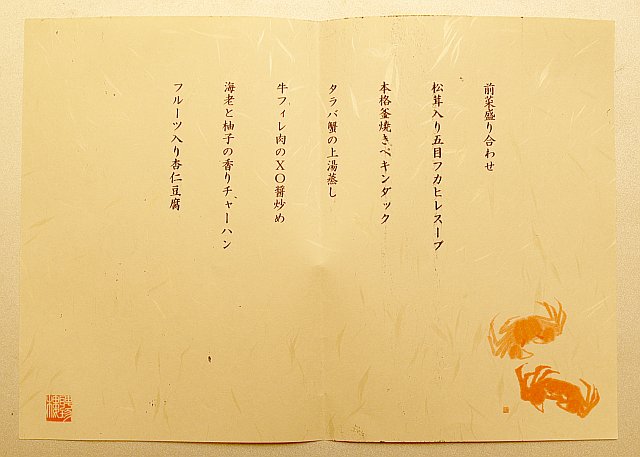 前菜盛り合わせ
松茸入り五目フカヒレスープ
本格釜焼きペキンダック
タラバ蟹の上湯蒸し
牛フィレ肉のXO醤炒め
海老と柚子の香りチャーハン
フルーツ入り杏仁豆腐